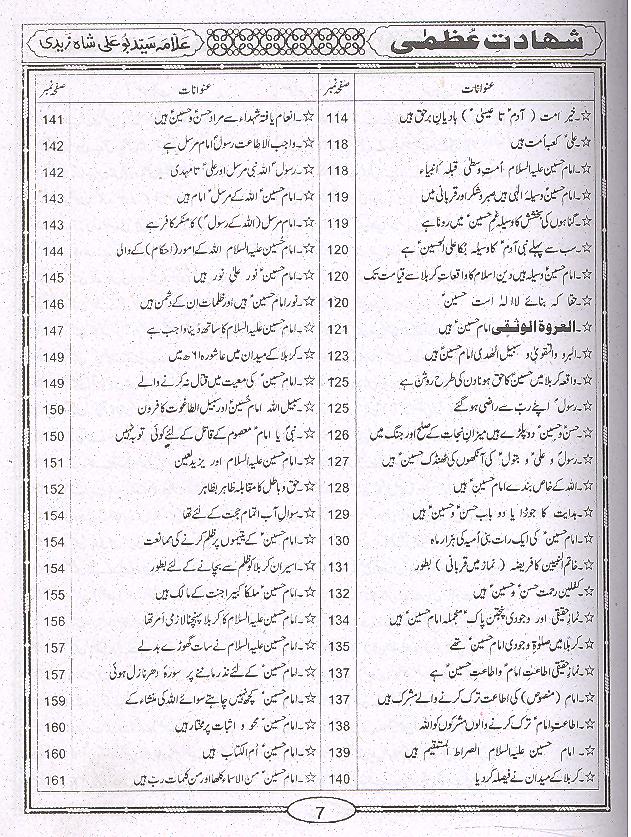 شہادتِ عُظمٰی
علامہ سید بو علی شاہ زیدی
عنوانات صفحہ نمبر
☆۔خیر امت (آدمؑ تا عیسیٰؑ) ہادیانِ برحق ہیں 114
☆۔علیؑ کعبہ امت ہیں 118
☆۔امام حسین علیہ السلام امتِ وسطیٰ قبلہ انبیاء 118
☆۔امام حسینؑ وسیلہ الٰہی ہیں صبر و شکر اور قربانی میں 119
☆۔گناہوں کی بخشش کا وسیلہ غمِ حسینؑ میں رونا ہے 119
☆۔سب سے پہلے نبی آدمؑ کا وسیلہ بُکا علی الحسینؑ ہے 120
☆۔امام حسینؑ وسیلہ ہیں دین اسلام کا واقعاتِ کربلا سے قیامت تک 120
☆۔حقا کہ بنائے لا الٰہ است حسینؑ 120
☆۔العروۃ الوثقٰی امام حسینؑ ہیں 121
☆۔البر و التقویٰ و سبیل الھدی امام حسینؑ ہیں 123
☆۔واقعہ کربلا میں حسینؑ کا حق ہونا دن کی طرح روشن ہے 125
☆۔رسولؑ اپنے رب سے راضی ہو گئے 125
☆۔حسنؑ و حسینؑ دو پلڑے ہیں میزانِ نجات کے صلح اور جنگ میں 126
☆۔رسولؐ و علیؑ و بتولؑ کی آنکھوں کی ٹھنڈک حسینؑ ہیں 127
☆۔اللہ کے خاص بندے امام حسینؑ ہیں 128
☆۔ہدایت کا جوڑا یا دو باب حسنؑ و حسینؑ ہیں 129
☆۔امام حسینؑ کی ایک رات بنی اُمیہ کی ہزار ماہ 130
☆۔خاتم النبیین کا فریضہ (نماز میں قربانی) بطور 131
☆۔کفلین رحمت حسنؑ و حسینؑ ہیں 132
☆۔نماز حقیقی اور وجودی پنجتن پاکؑ منجملہ امام حسینؑ ہیں 134
☆۔کربلا میں صلوٰۃِ وجودی امام حسینؑ تھے 135
☆۔نماز حقیقی اطاعتِ امامؑ و اطاعتِ حسینؑ ہے 137
☆۔امام (منصوص) کی اطاعت ترک کرنے والے مشرک ہیں 137
☆۔اطاعتِ امامؑ ترک کرنے والوں مشرکوں کو اللہ 138
☆۔امام حسین علیہ السلام الصراط المستقیم ہیں 139
☆۔کربلا کے میدان نے فیصلہ کر دیا 140
عنوانات صفحہ نمبر
☆۔انعام یافتہ شہداء سے مراد حسنؑ و حسینؑ ہیں 141
☆۔واجب الاطاعت رسولؐ امام مرسل ہے 142
☆۔رسولؐ اللہ نبی مرسل اور علیؑ تا مہدیؑ 142
☆۔امام حسینؑ اللہ کے مرسل امام ہیں 143
☆۔امام مرسل (اللہ کے رسولؐ) کا منکر کافر ہے 143
☆۔امام حُسین علیہ السلام اللہ کے امور (احکام) کے والی 144
☆۔امام حسینؑ نور علیٰ نور ہیں 145
☆۔نور امام حسینؑ ہیں اور ظلمات ان کے دشمن ہیں 146
☆۔امام حسین علیہ السلام کا ساتھ دینا واجب ہے 147
☆۔کربلا کے میدان میں عاشورہ ۶۱ھ میں 149
☆۔امام حسینؑ کی معیت میں قتال نہ کرنے والے 149
☆۔سبیل اللہ امام حُسینؑ اور سبیل الطاغوت کا فرون 150
☆۔نبیؐ یا امامؑ معصوم کے قاتل کے لئے کوئی توبہ نہیں 150
☆۔امام حسین علیہ السلام اور یزید لعین 151
☆۔حق و باطل کا مقابلہ ظاہر بظاہر 152
☆۔سوالِ آب اتمام حجت کے لئے تھا 154
☆۔امام حسینؑ کے یتیموں پر ظلم کرنے کی ممانعت 154
☆۔اسیرانِ کربلا کو ظلم سے بچانے کے لئے بطور 154
☆۔امام حسینؑ ملکاً کبیرا جنت کے مالک ہیں 155
☆۔امام حسین علیہ السلام کا کربلا پہنچنا لازمی امر تھا 156
☆۔امام حسین علیہ السلام نے سات گھوڑے بدلے 157
☆۔امام حسینؑ کے لئے نذر ماننے پر سورۂ دھر نازل ہوئی 157
☆۔امام حسینؑ کچھ نہیں چاہتے سوائے اللہ کی منشاء کے 159
☆۔امام حسینؑ محو و اثبات پر مختار ہیں 160
☆۔امام حسینؑ اُم الکتاب ہیں 160
☆۔امام حسینؑ من الاسماء کلھا اور من کلمات رب ہیں 161
7